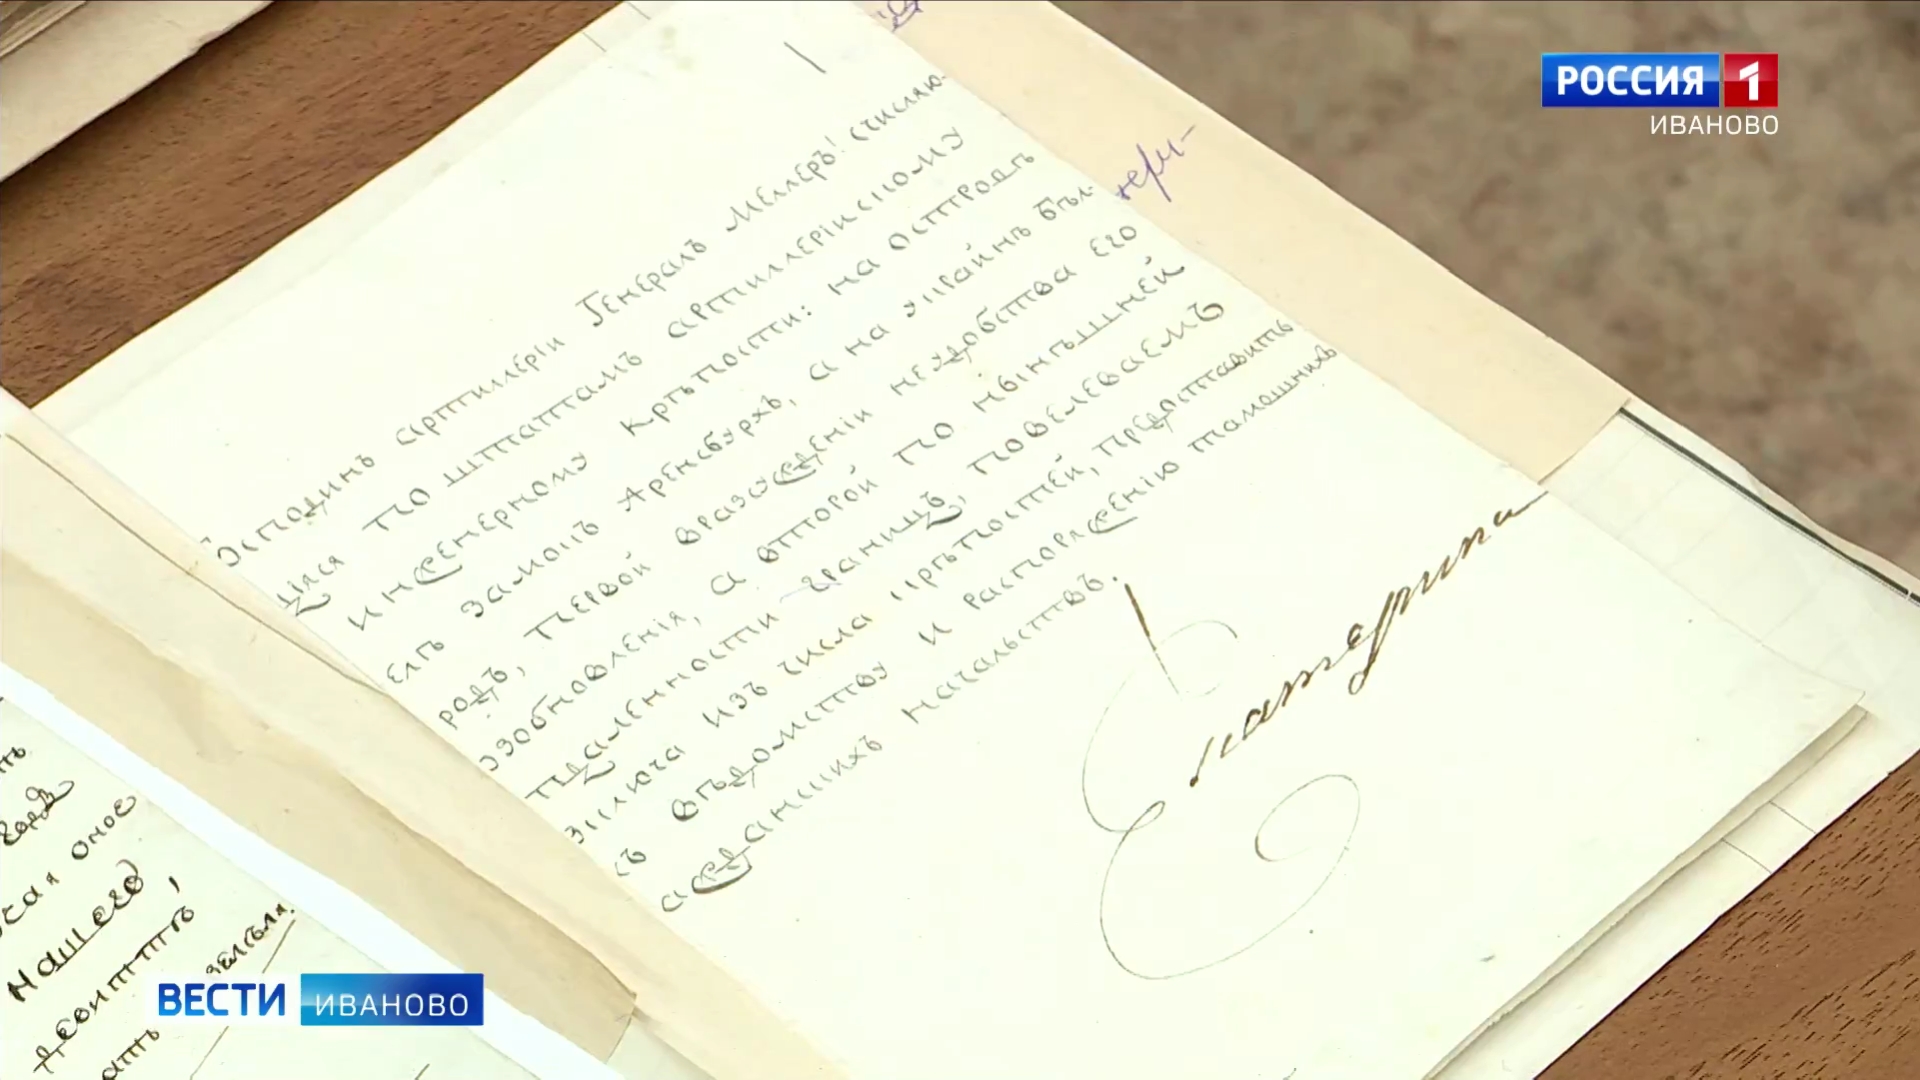 РОССИЯ 1
ИВАНОВО
Господинъ артиллеріи Генералъ Меллеръ! счисляю-
щіяся по штатамъ артиллерійскому
и инженерному крѣпости: на островѣ
Езелѣ замокъ Аренсбурхъ, а на украйнѣ Бѣл-
родъ, первой вразсужденіи неудобства его
возобновленія, а второй по нынѣшней
отдаленности границъ, повелеваемъ
изключа изъ числа крѣпостей, предоставить
въ вѣдомству и распоряженію тамошнихъ
гражданскихъ начальствъ.
Екатерина
оное
нашего
ВЕСТИ ИВАНОВО